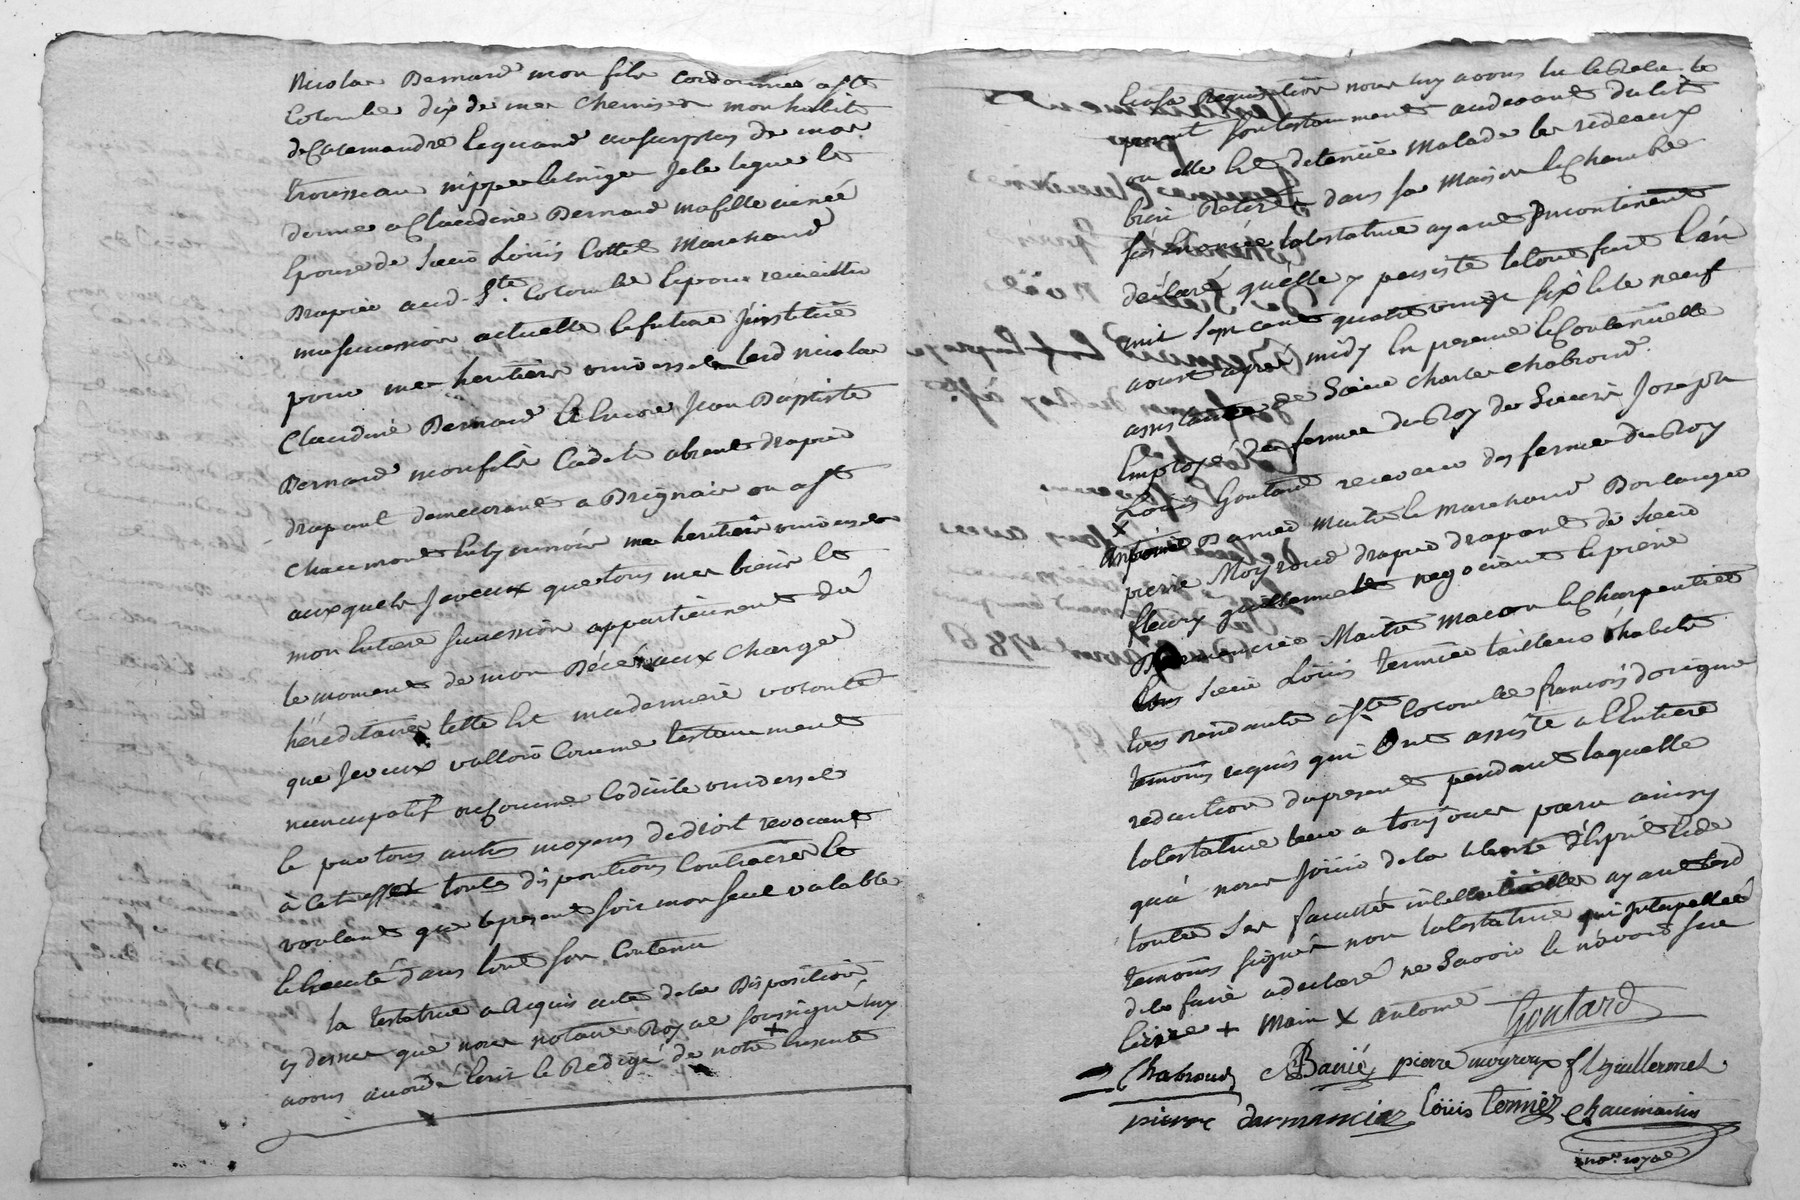 Nicolas Bernard mon fils Cordonnier a Ste
Colombe dix de mes chemises mon habit
de Calemandre legrand au surplus de mon
trousseau nippes et linges Je le legue et
donne a Claudine Bernard ma fille ainée
Epouse de Sieur Loüis Cottet Marchand
Drapier aud. Ste. Colombe Et pour recueillir
ma succession actuelle Et future J'institüe
pour mes heritiers universels Led Nicolas
Claudine Bernard Et Encore Jean Baptiste
Bernard mon fils Cadet absent drapier
drapant demeurant a Brignais ou a St
Chaumont Et les nomme mes heritiers universels
auxquels Je veux que tous mes biens Et
mon Entiere succession appartiennent du
le moment de mon Décés aux Charges
héréditaires telle Est ma derniere volonté
que Je veux valloir Comme testamment
nuncupatif ou Comme Codicile universel
Et par tous autres moyens de droit revocant
à cet effet toutes dispositions Contraires Et
voulant que le present soit mon seul valable
Et Executé dans tout son Contenu
la testatrice a Requis acte de la Disposition
cy dessus que nous notaire Royal soussigné luy
avons accordé Ecrit Et Redigé de notre + presente
Et a sa Requisition nous luy avons lu Et Relu le
present son testamment audevant du lit
ou elle Est detenüe Malade les rideaux
bien Retirés dans sa Maison Et Chambre
sus Enoncée la testatrice ayant Incontinent
déclaré qu'elle y persiste le tout fait L'an
mil sept cent quatre vingt six Et le neuf
aoust après midy En presence Et Continuelle
assistance de Sieur Charles Chabroud
Employé des fermes du Roy de Sieur Joseph
Loüis Goutard receveur des fermes du Roy
x
Antoine Banié Maitre Et marchand Boulanger
pierre Moyroud drapier drapant de Sieur
fleury guillermet negociant Et pierre
Darmencier Maitre macon Et Charpentier
Et du Sieur Loüis termier tailleur d'habits
tous residants a Ste Colombe françois d'origine
temoins requis qui Ont assisté a l'Entiere
redaction du present pendant laquelle
la testatrice leur a toujours paru ainsy
qu'à nous Joüir de la liberté d'Esprit Et de
toutes ses facultés intellectuelles ayant Lesd
temoins signé non la testatrice qui Interpellée
de le faire a declaré ne savoir Et n'avoir sue
Ecrire + Main x Antoine Goutard
Chabroud ABanié pierre moyroux fl guillermet
pierre darmancier Loüis termier Chaumartin
nore. royal